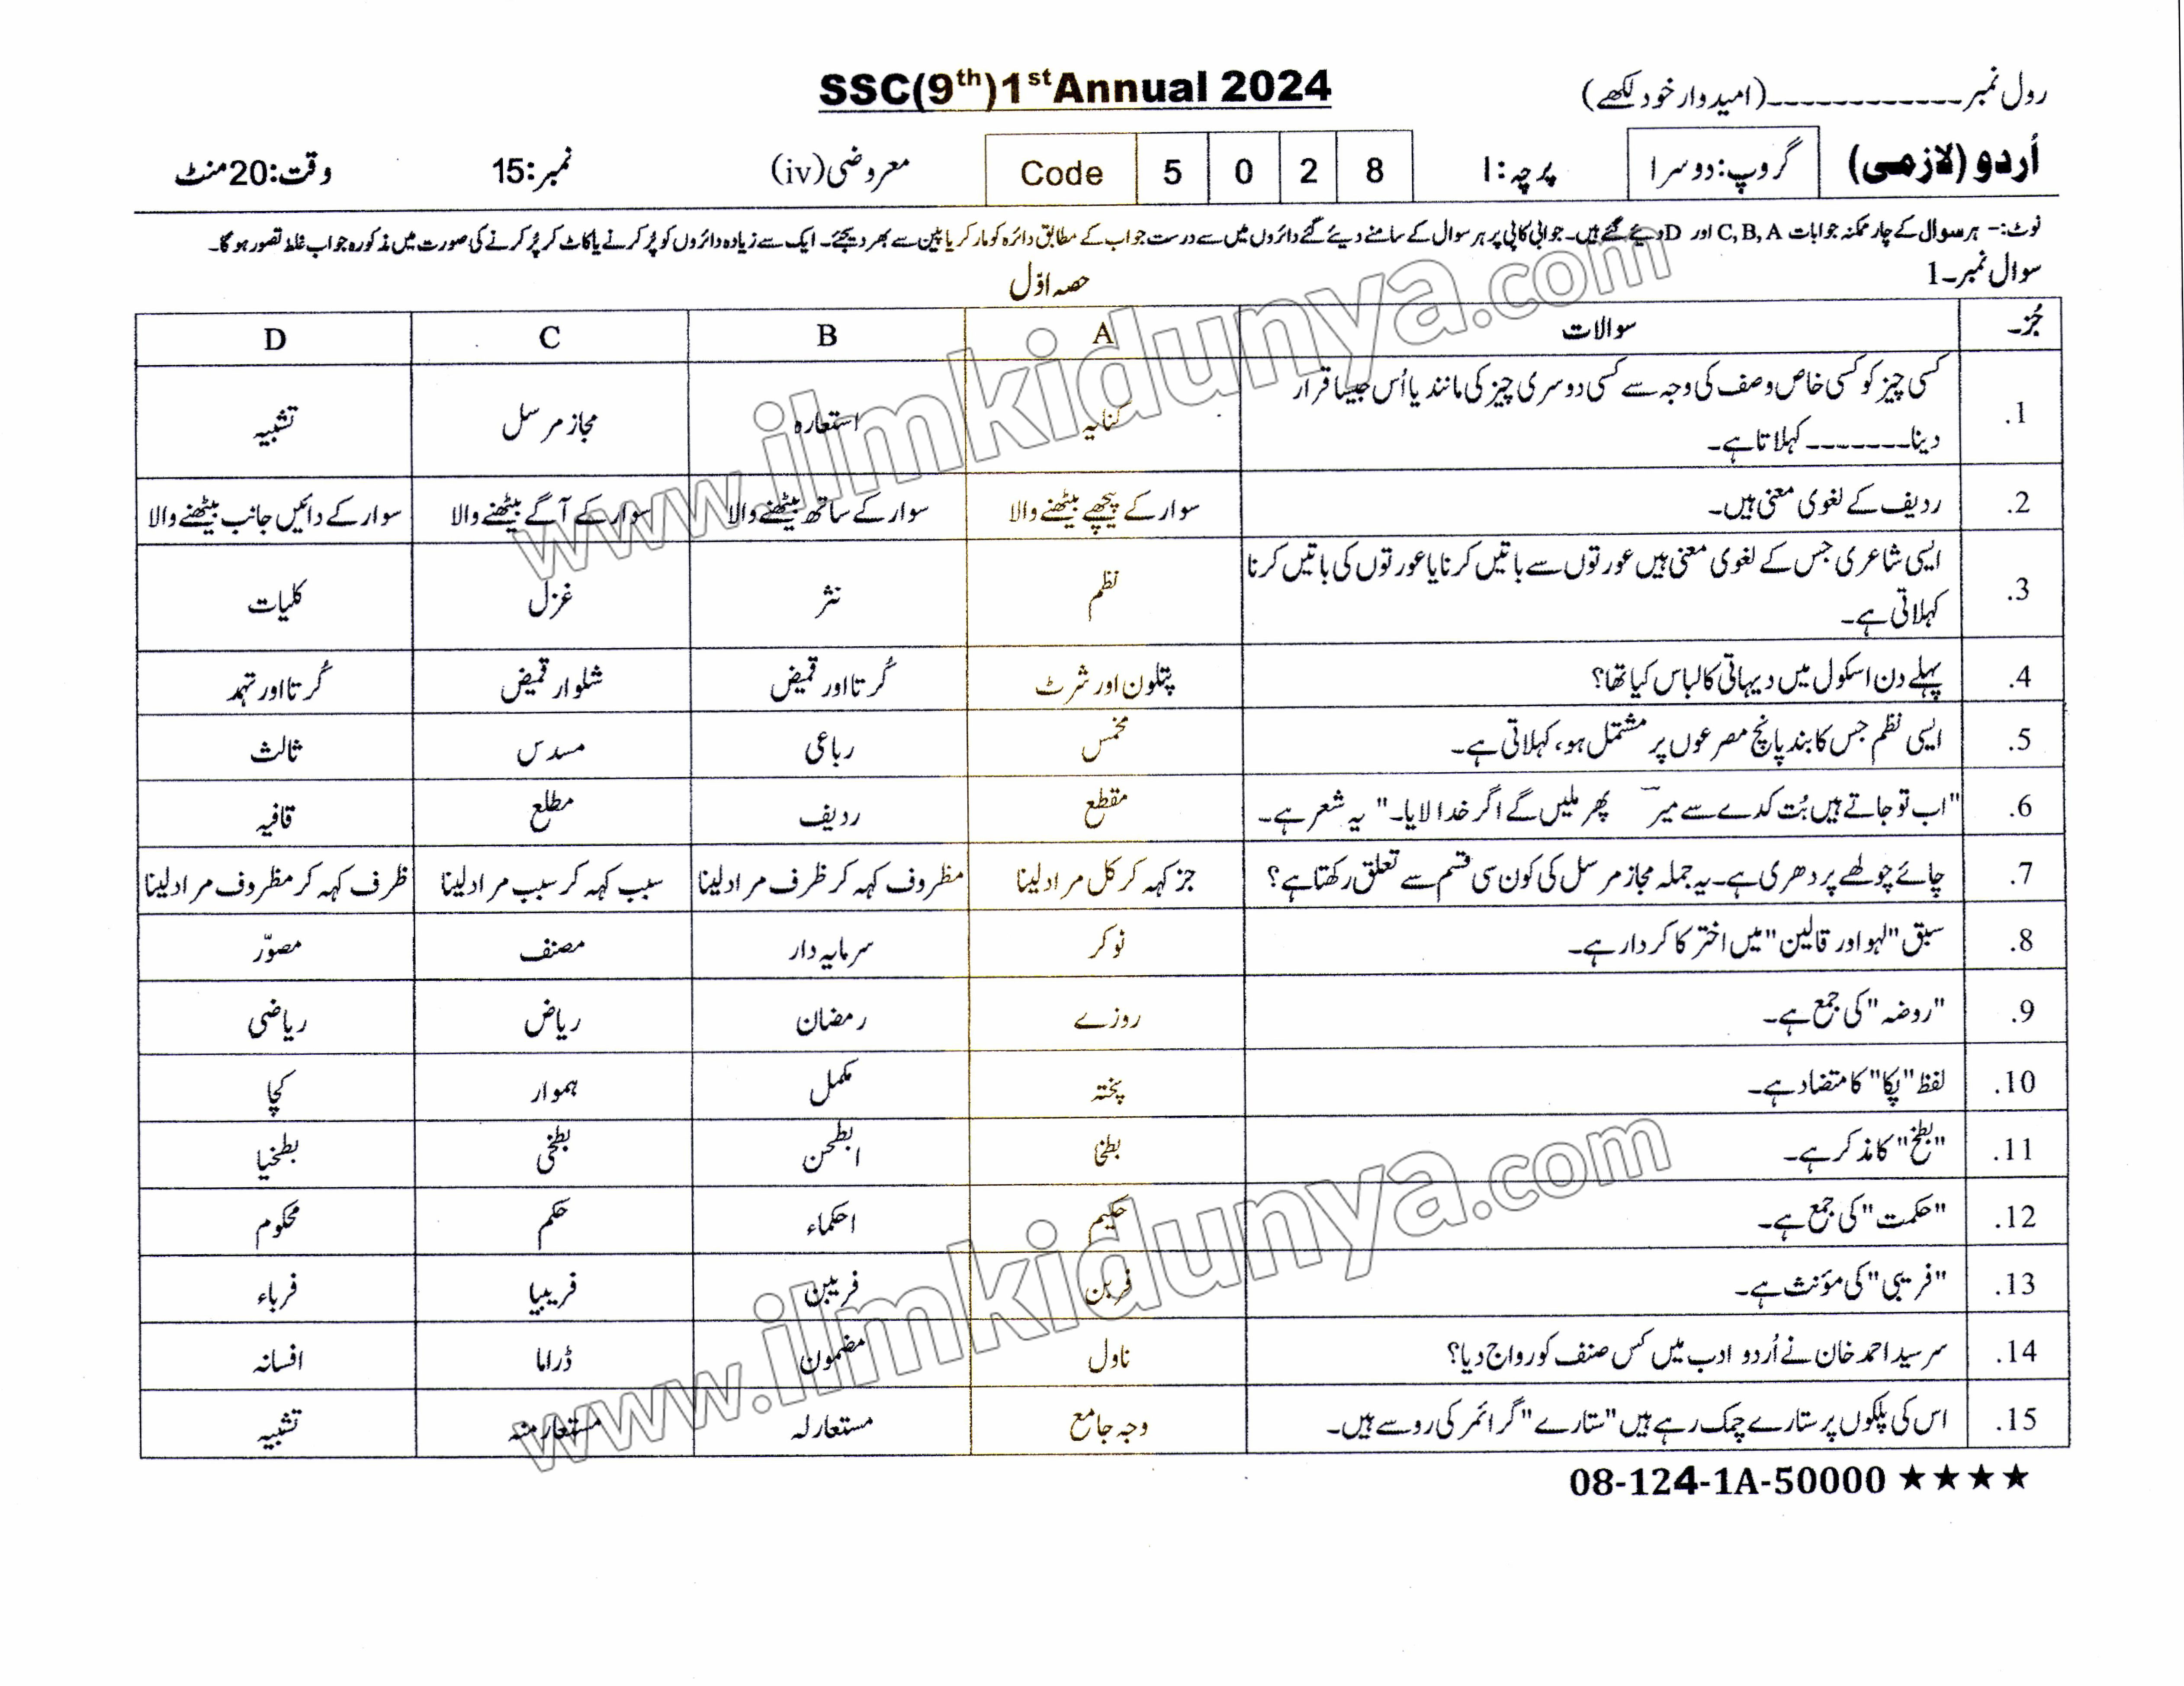 SSC(9th)1st Annual 2024
رول نمبر ------------(امیدوار خود لکھے)
اُردو (لازمی) گروپ: دوسرا پرچہ: I Code 5 0 2 8 معروضی (iv) نمبر: 15 وقت: 20 منٹ
نوٹ:- ہر سوال کے چار ممکنہ جوابات C, B, A اور D دیئے گئے ہیں۔ جوابی کاپی پر ہر سوال کے سامنے دیئے گئے دائروں میں سے درست جواب کے مطابق دائرہ کو مارکر یا پین سے بھر دیجئے۔ ایک سے زیادہ دائروں کو پُر کرنے یا کاٹ کر پُر کرنے کی صورت میں مذکورہ جواب غلط تصور ہو گا۔
سوال نمبر۔1
حصہ اوّل
جُز۔ سوالات A B C D
1. کسی چیز کو کسی خاص وصف کی وجہ سے کسی دوسری چیز کی مانند یا اُس جیسا قرار
دینا------- کہلاتا ہے۔ کنایہ استعارہ مجاز مرسل تشبیہ
2. ردیف کے لغوی معنی ہیں۔ سوار کے پیچھے بیٹھنے والا سوار کے ساتھ بیٹھنے والا سوار کے آگے بیٹھنے والا سوار کے دائیں جانب بیٹھنے والا
3. ایسی شاعری جس کے لغوی معنی ہیں عورتوں سے باتیں کرنا یا عورتوں کی باتیں کرنا
کہلاتی ہے۔ نظم نثر غزل کلیات
4. پہلے دن اسکول میں دیہاتی کا لباس کیا تھا؟ پتلون اور شرٹ کُرتا اور قمیض شلوار قمیض کُرتا اور تہمد
5. ایسی نظم جس کا بند پانچ مصرعوں پر مشتمل ہو، کہلاتی ہے۔ مخمس رباعی مسدس ثالث
6. "اب تو جاتے ہیں بُت کدے سے میرؔ پھر ملیں گے اگر خدا لایا۔" یہ شعر ہے۔ مقطع ردیف مطلع قافیہ
7. چائے چولھے پر دھری ہے۔ یہ جملہ مجاز مرسل کی کون سی قسم سے تعلق رکھتا ہے؟ جز کہہ کر کل مراد لینا مظروف کہہ کر ظرف مراد لینا سبب کہہ کر سبب مراد لینا ظرف کہہ کر مظروف مراد لینا
8. سبق "لہو اور قالین" میں اختر کا کردار ہے۔ نوکر سرمایہ دار مصنف مصوّر
9. "روضہ" کی جمع ہے۔ روزے رمضان ریاض ریاضی
10. لفظ "پکا" کا متضاد ہے۔ پختہ مکمل ہموار کچا
11. "بطخ" کا مذکر ہے۔ بطخا ابطخن بطخی بطخیا
12. "حکمت" کی جمع ہے۔ حکیم احکماء حکم محکوم
13. "فریبی" کی مؤنث ہے۔ فربن فریبن فریبیا فرباء
14. سر سید احمد خان نے اُردو ادب میں کس صنف کو رواج دیا؟ ناول مضمون ڈراما افسانہ
15. اس کی پلکوں پر ستارے چمک رہے ہیں "ستارے" گرائمر کی رو سے ہیں۔ وجہ جامع مستعار لہ مستعار منہ تشبیہ
08-124-1A-50000 ★★★★
www.ilmkidunya.com
www.ilmkidunya.com